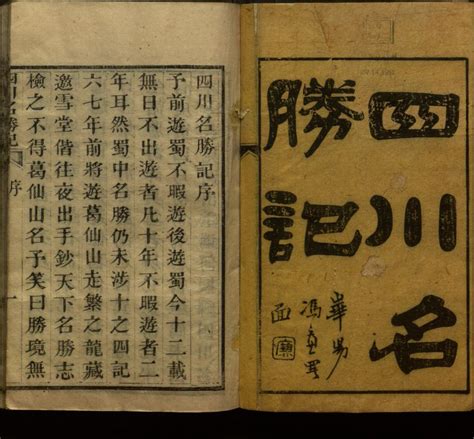 四川名
勝記
華陽
馮
面
四川名勝記序
予前遊蜀不暇遊後遊蜀今十二載
無日不出遊者凡十年不暇遊者二
年耳然蜀中名勝仍未涉十之四記
六七年前將遊葛仙山走繁之龍藏
邀雪堂偕往夜出手鈔天下名勝志
檢之不得葛仙山名予笑曰勝境無
四川名勝記
序
一